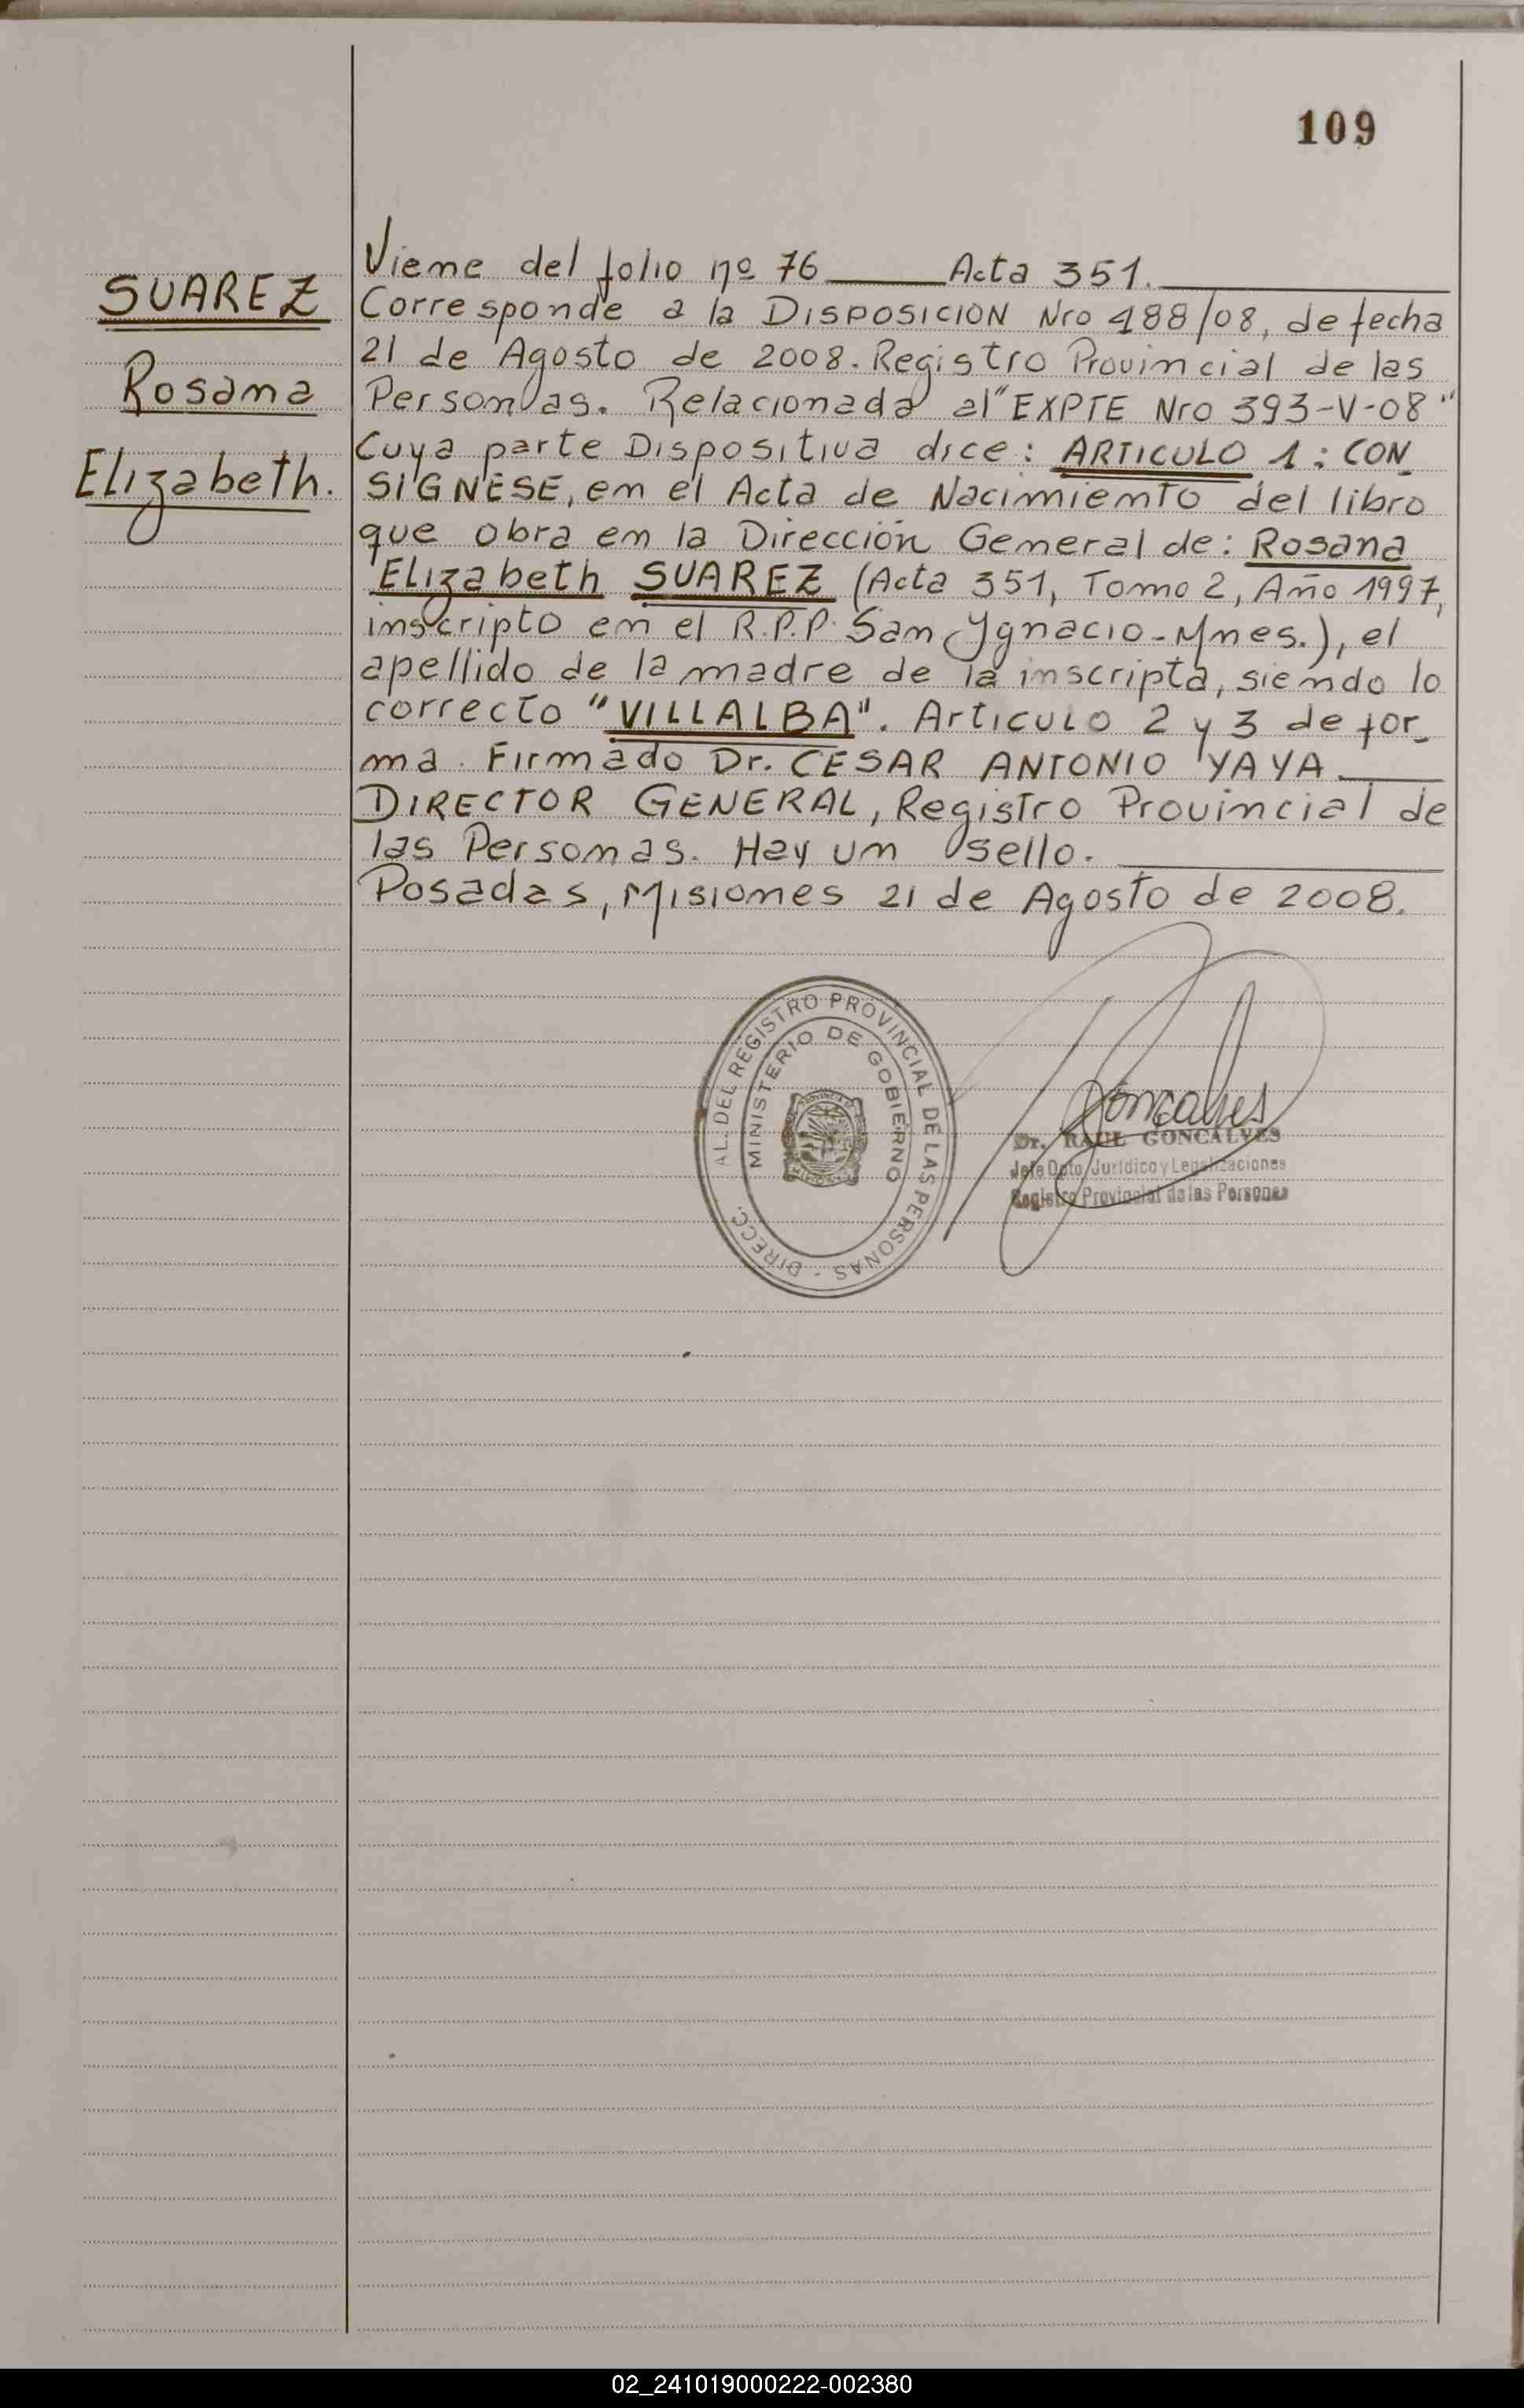 109
SUAREZ
Rosana
Elizabeth.
Viene del folio nº 76 ____ Acta 351.
Corresponde a la DISPOSICION Nro 488/08, de fecha
21 de Agosto de 2008. Registro Provincial de las
Personas. Relacionada al "EXPTE Nro 393-V-08"
Cuya parte Dispositiva dice: ARTICULO 1: CON_
SIGNESE, en el Acta de Nacimiento del libro
que obra en la Dirección General de: Rosana
Elizabeth SUAREZ (Acta 351, Tomo 2, Año 1997,
inscripto en el R.P.P. San Ygnacio-Mnes.), el
apellido de la madre de la inscripta, siendo lo
correcto "VILLALBA". Articulo 2 y 3 de for_
ma. Firmado Dr. CESAR ANTONIO YAYA ____
DIRECTOR GENERAL, Registro Provincial de
las Personas. Hay un sello. ____
Posadas, Misiones 21 de Agosto de 2008.
DIRECC. AL. DEL REGISTRO PROVINCIAL DE LAS PERSONAS -
MINISTERIO DE GOBIERNO
Goncalves
Dr. RAUL GONCALVES
Jefe Dpto. Jurídico y Legalizaciones
Registro Provincial de las Personas
02_241019000222-002380